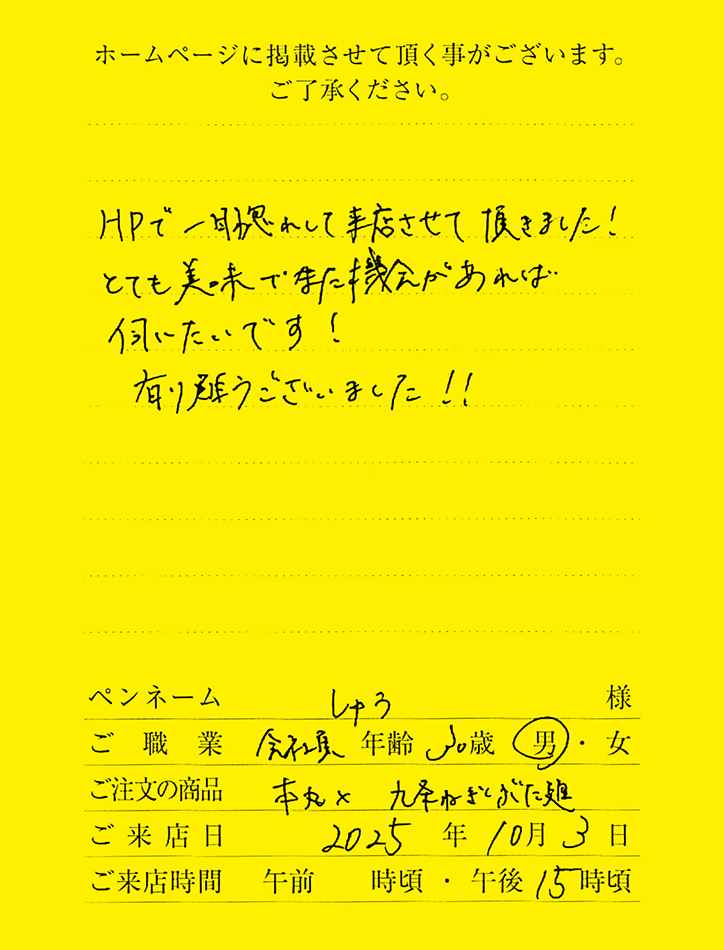 ホームページに掲載させて頂く事がございます。
ご了承ください。
HPで一目惚れして来店させて頂きました!
とても美味でまた機会があれば
伺いたいです!
有り難うございました!!
ペンネーム しゅう 様
ご職業 会社員 年齢 30歳 男・女
ご注文の商品 本丸× 九条ねぎしぶた麺
ご来店日 2025年10月3日
ご来店時間 午前 時頃・午後15時頃